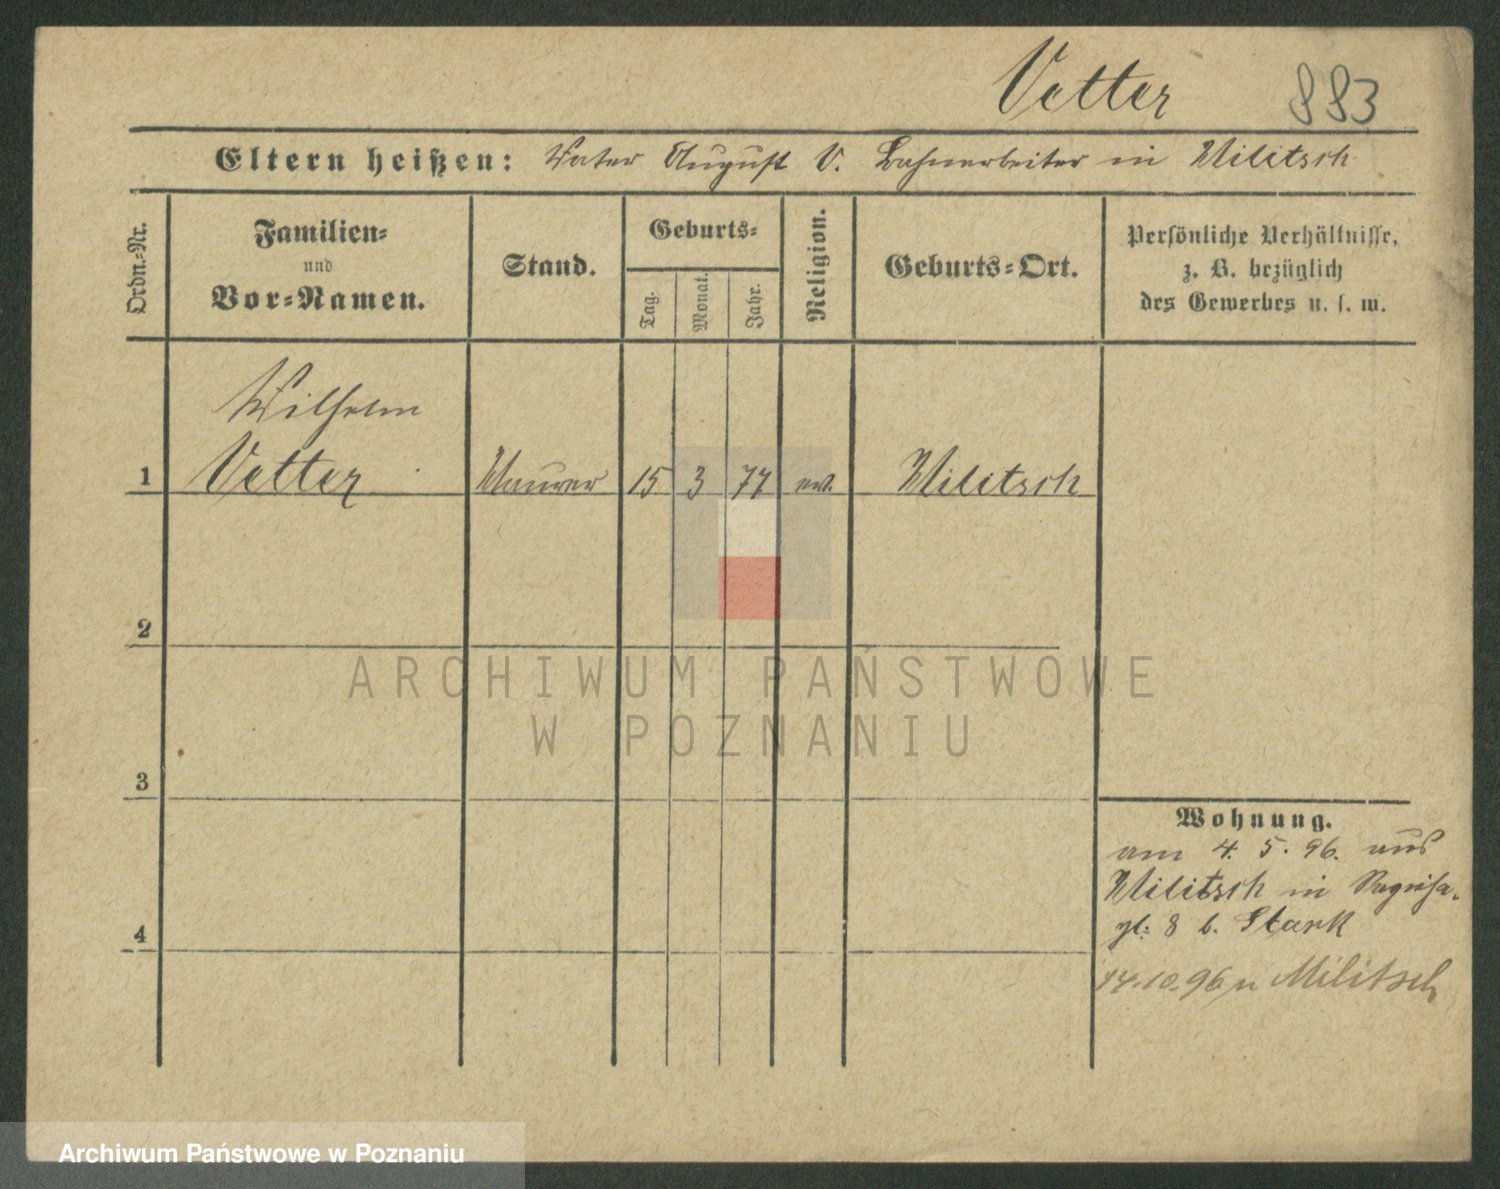 Vetter 883
Eltern heißen: Vater August V. Bahnarbeiter in Militsch
Ordn.-Nr.
Familien-
und
Vor-Namen.
Stand.
Geburts-
Tag.
Monat.
Jahr.
Religion.
Geburts-Ort.
Persönliche Verhältnisse,
z. B. bezüglich
des Gewerbes u. s. w.
Wilhelm
1 Vetter Maurer 15 3 77 ev. Militsch
2
3
4
Wohnung.
am 4. 5. 96. aus
Militsch in
8 b. Stark
14.10.96 n Militsch
ARCHIWUM PAŃSTWOWE
W POZNANIU
Archiwum Państwowe w Poznaniu